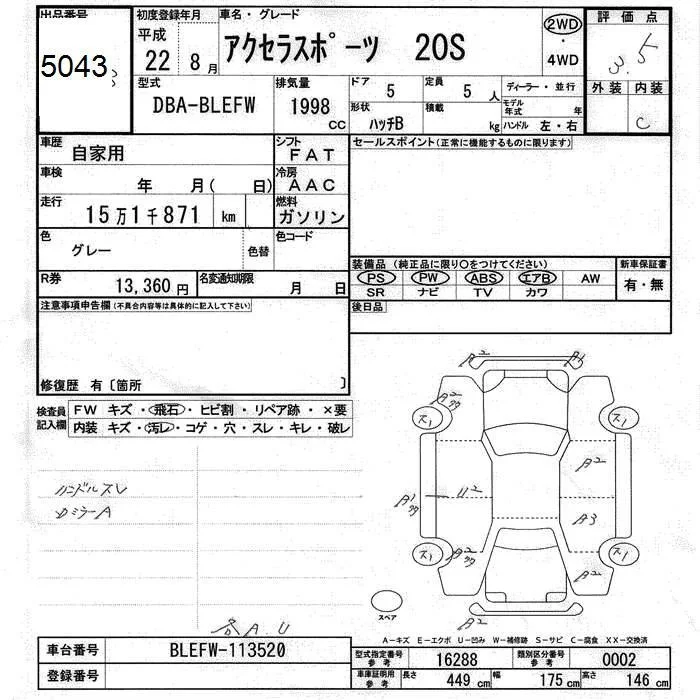 出品番号
5043
初度登録年月
平成
22 8 月
車名・グレード
アクセラスポーツ 20S
2WD
・
4WD
評価点
3.5
外装 内装
C
型式
DBA-BLEFW
排気量
1998
CC
ドア 5
定員 5 人
形状
ハッチB
積載
kg
ディーラー・並行
モデル年式 年
ハンドル 左・右
車歴
自家用
シフト
FAT
車検
年 月( 日)
冷房
AAC
走行
15万1千871 km
燃料
ガソリン
色
グレー
色替
色コード
R券
13,360 円
名変通知期限
月 日
セールスポイント(正常に機能するものに限ります)
装備品 (純正品に限り○をつけてください)
新車保証書
PS PW ABS エアB AW
SR ナビ TV カワ
有・無
後日品
注意事項申告欄(不具合内容等は具体的に記入して下さい)
修復歴 有〔箇所 〕
検査員
記入欄
FW キズ・飛石・ヒビ割・リペア跡・×要
内装 キズ・汚レ・コゲ・穴・スレ・キレ・破レ
ハンドルスレ
ミラーA
A2
A1
A2
ス1
ス1
A2
A1
U2
A3
ス1
A2
ス1
A2
A2
スペア
各A.U
A-キズ E-エクボ U-凹み W-補修跡 S-サビ C-腐食 XX-交換済
車台番号
BLEFW-113520
登録番号
型式指定番号
参考
16288
類別区分番号
参考
0002
車庫証明用
参考
長さ
449 cm
幅
175 cm
高さ
146 cm